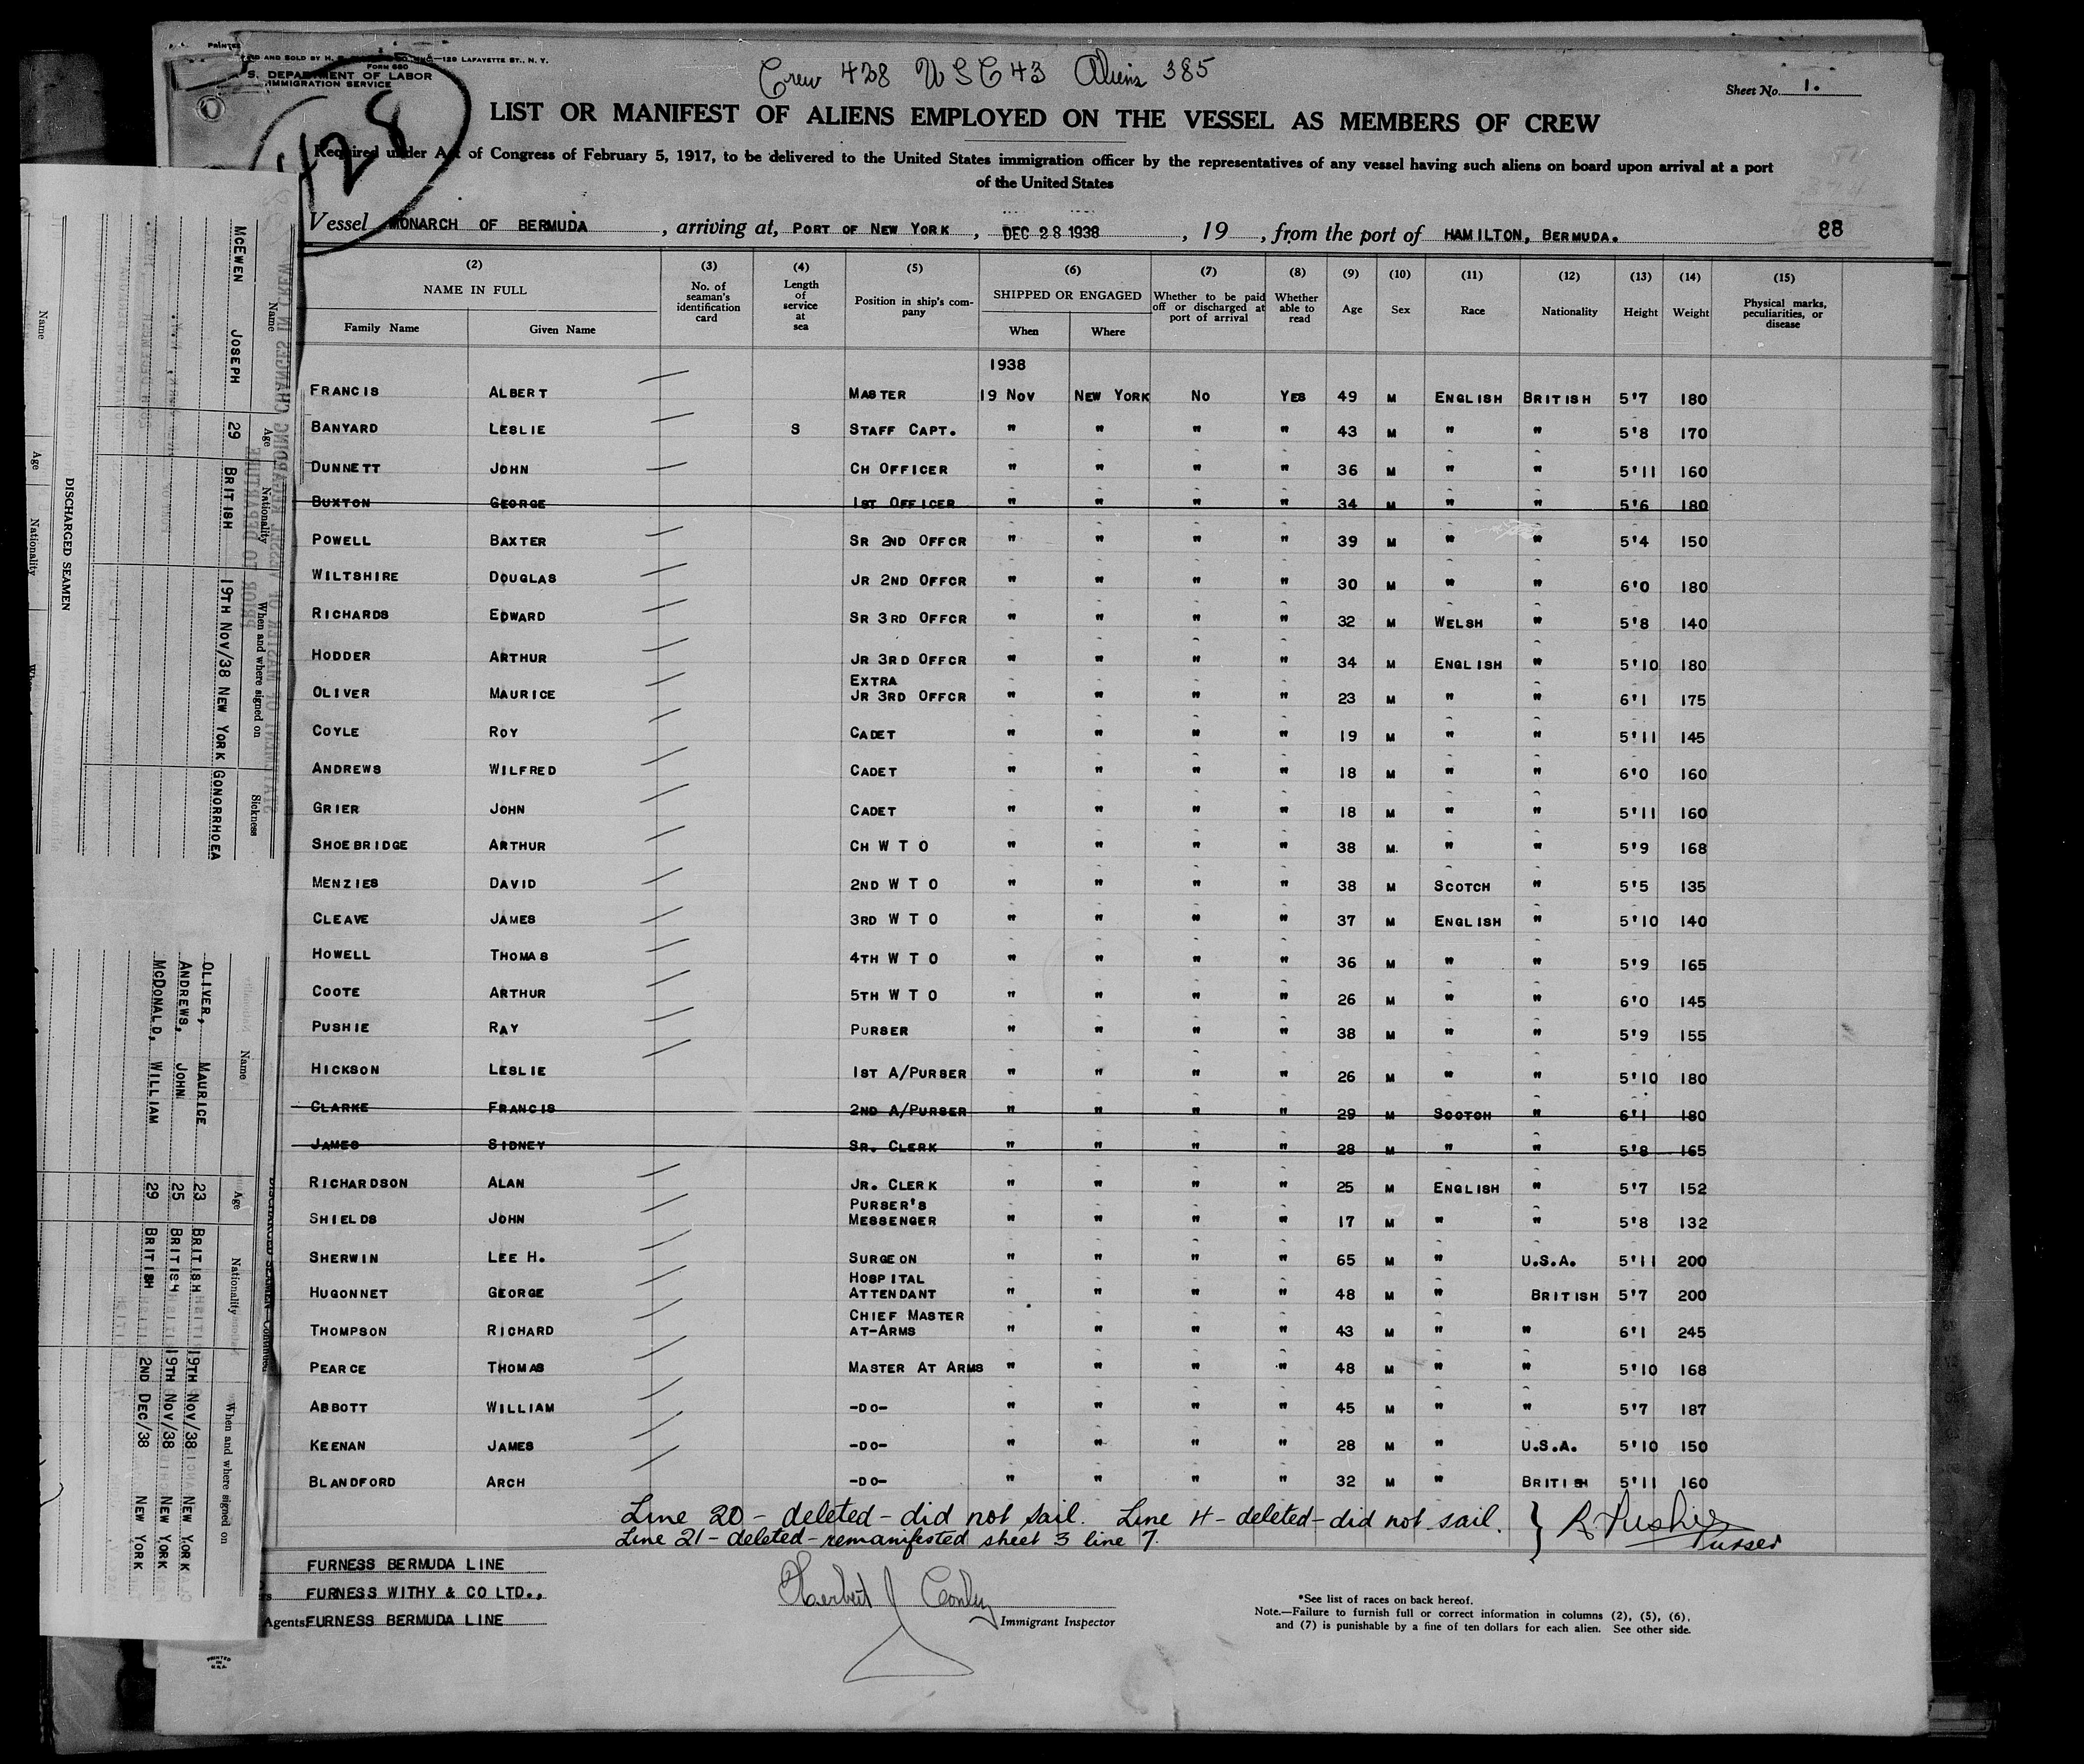 Crew 428 USC 43 Aliens 385
AND SOLD BY H.
129 LAFAYETTE ST., N. Y.
FORM 680
S. DEPARTMENT OF LABOR
IMMIGRATION SERVICE
Sheet No. 1.
428
LIST OR MANIFEST OF ALIENS EMPLOYED ON THE VESSEL AS MEMBERS OF CREW
Required under Act of Congress of February 5, 1917, to be delivered to the United States immigration officer by the representatives of any vessel having such aliens on board upon arrival at a port
of the United States
Vessel MONARCH OF BERMUDA, arriving at, PORT OF NEW YORK, DEC 28 1938, 19, from the port of HAMILTON, BERMUDA. 88
(2) NAME IN FULL Family Name Given Name (3) No. of seaman's identification card (4) Length of service at sea (5) Position in ship's company (6) SHIPPED OR ENGAGED When Where (7) Whether to be paid off or discharged at port of arrival (8) Whether able to read (9) Age (10) Sex (11) Race (12) Nationality (13) Height (14) Weight (15) Physical marks, peculiarities, or disease
1938
FRANCIS ALBERT MASTER 19 NOV NEW YORK NO YES 49 M ENGLISH BRITISH 5'7 180
BANYARD LESLIE S STAFF CAPT. " " " " 43 M " " 5'8 170
DUNNETT JOHN CH OFFICER " " " " 36 M " " 5'11 160
BUXTON GEORGE 1ST OFFICER " " " " 34 M " " 5'6 180
POWELL BAXTER SR 2ND OFFCR " " " " 39 M " " 5'4 150
WILTSHIRE DOUGLAS JR 2ND OFFCR " " " " 30 M " " 6'0 180
RICHARDS EDWARD SR 3RD OFFCR " " " " 32 M WELSH " 5'8 140
HODDER ARTHUR JR 3RD OFFCR " " " " 34 M ENGLISH " 5'10 180
OLIVER MAURICE EXTRA JR 3RD OFFCR " " " " 23 M " " 6'1 175
COYLE ROY CADET " " " " 19 M " " 5'11 145
ANDREWS WILFRED CADET " " " " 18 M " " 6'0 160
GRIER JOHN CADET " " " " 18 M " " 5'11 160
SHOEBRIDGE ARTHUR CH W T O " " " " 38 M. " " 5'9 168
MENZIES DAVID 2ND W T O " " " " 38 M SCOTCH " 5'5 135
CLEAVE JAMES 3RD W T O " " " " 37 M ENGLISH " 5'10 140
HOWELL THOMAS 4TH W T O " " " " 36 M " " 5'9 165
COOTE ARTHUR 5TH W T O " " " " 26 M " " 6'0 145
PUSHIE RAY PURSER " " " " 38 M " " 5'9 155
HICKSON LESLIE 1ST A/PURSER " " " " 26 M " " 5'10 180
CLARKE FRANCIS 2ND A/PURSER " " " " 29 M SCOTCH " 6'1 180
JAMES SIDNEY SR. CLERK " " " " 28 M " " 5'8 165
RICHARDSON ALAN JR. CLERK " " " " 25 M ENGLISH " 5'7 152
SHIELDS JOHN PURSER'S MESSENGER " " " " 17 M " " 5'8 132
SHERWIN LEE H. SURGEON " " " " 65 M " U.S.A. 5'11 200
HUGONNET GEORGE HOSPITAL ATTENDANT " " " " 48 M " BRITISH 5'7 200
THOMPSON RICHARD CHIEF MASTER AT-ARMS " " " " 43 M " " 6'1 245
PEARCE THOMAS MASTER AT ARMS " " " " 48 M " " 5'10 168
ABBOTT WILLIAM -DO- " " " " 45 M " " 5'7 187
KEENAN JAMES -DO- " " " " 28 M " U.S.A. 5'10 150
BLANDFORD ARCH -DO- " " " " 32 M " BRITISH 5'11 160
Line 20 - deleted - did not sail. Line 4 - deleted - did not sail. } R. Pushie
Line 21 - deleted - remanifested sheet 3 line 7. Purser
FURNESS BERMUDA LINE
FURNESS WITHY & CO LTD.,
Agents FURNESS BERMUDA LINE
Herbert J Conley
Immigrant Inspector
*See list of races on back hereof.
Note.—Failure to furnish full or correct information in columns (2), (5), (6),
and (7) is punishable by a fine of ten dollars for each alien. See other side.
PRINTED IN U.S.A.
Name Age Nationality When and where signed on Sickness
MCEWEN JOSEPH 29 BRITISH 19TH NOV/38 NEW YORK GONORRHOEA
DISCHARGED SEAMEN
Name Age Nationality
Name Age Nationality When and where signed on
OLIVER, MAURICE 23 BRITISH 19TH NOV/38 NEW YORK
ANDREWS, JOHN 25 BRITISH 19TH NOV/38 NEW YORK
MCDONALD, WILLIAM 29 BRITISH 2ND DEC/38 NEW YORK